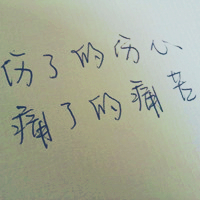 伤了的伤心
痛了的痛苦